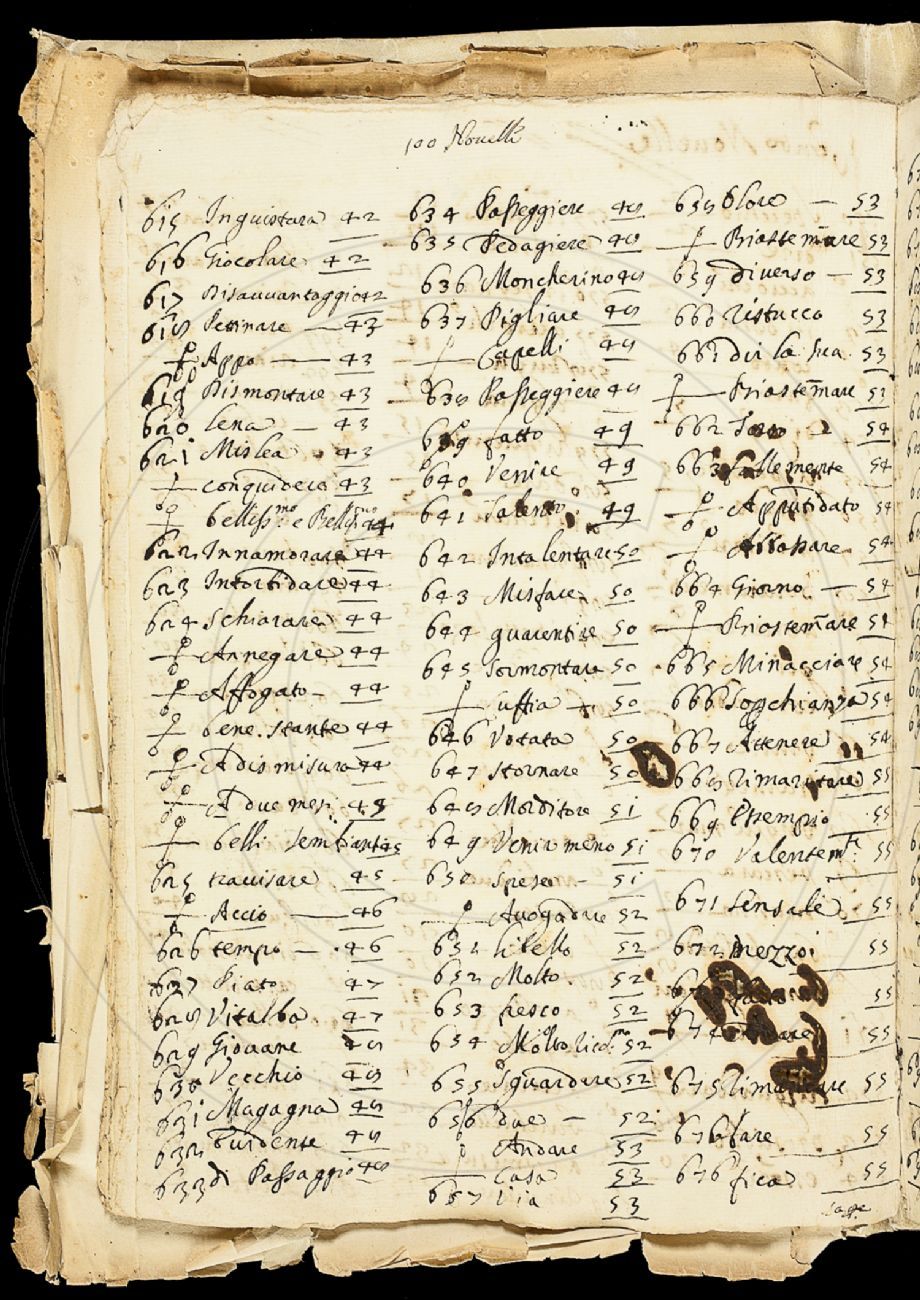 100 Nouelle
615 Inguistara 42
616 Giocolare 42
617 Disauuantaggio 42
618 Pettinare — 43
Appo — 43
619 Dismontare 43
620 Lena — 43
621 Mislea 43
conquidere 43
belliss.mo e
622 Innamorare 44
623 Intorbidare 44
624 Schiarare 44
Annegare 44
Affogato - 44
bene stante 44
A dismisura 44
A due mesi 45
belli sembianti 45
625 trauisare 45
Accio — 46
626 tempo — 46
627 Piato 47
628 Vitalba 47
629 Giouane 48
630 Vecchio 48
631 Magagna 48
632 48
633 di Passaggio 48
634 Passeggiere 48
635 Pedagiere 48
636 Moncherino 48
637 Pigliare 48
Capelli 48
638 Passeggiere 48
639 fatto 49
640 Venire 49
641 Talento 49
642 Intalentare 50
643 Misfare 50
644 guarentire 50
645 Sormontare 50
uffia 50
646 Votata 50
647 Stornare 50
648 Morditore 51
649 Venir meno 51
650 Spesa - 51
Auogadre 52
651 libello 52
652 Molto 52
653 fresco 52
654 Molto 52
655 Sguardare 52
656 due — 52
Andare 53
Casa 53
657 Via 53
658 Olore — 53
Biastemare 53
659 diuerso — 53
660 ristucco 53
661 dir la sua 53
Biastemare 53
662 54
663 follemente 54
Apputidato 54
54
664 Giorno — 54
Biastemare 54
665 Minacciare 54
666 54
667 Attenere 54
668 rimaritare 55
669 Esempio 55
670 Valentem.te 55
671 Sensale 55
672 mezzo 55
55
674 55
675 55
676 fare 55
676 fica 55